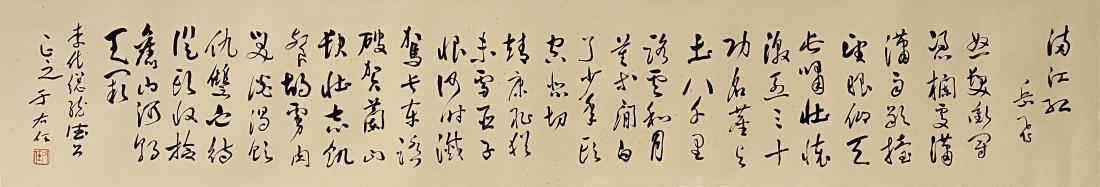 滿江紅
岳飛
怒髮衝冠
憑欄處瀟
瀟雨歇擡
望眼仰天
長嘯壯懷
激烈三十
功名塵與
土八千里
路雲和月
莫等閒白
了少年頭
空悲切
靖康恥猶
未雪臣子
恨何時滅
駕長車踏
破賀蘭山
缺壯志飢
餐胡虜肉
笑談渴飲
仇讐血待
從頭收拾
舊山河朝
天闕
李代總統德公
正之于右任